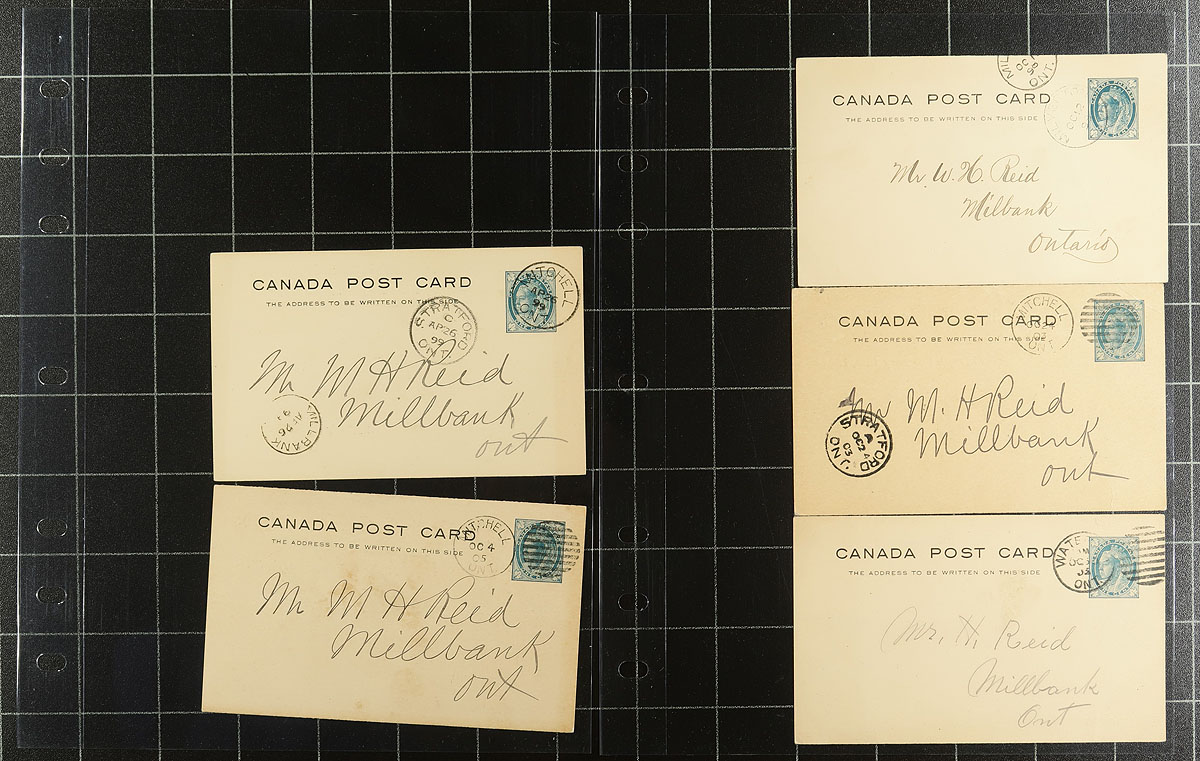 CANADA POST CARD
THE ADDRESS TO BE WRITTEN ON THIS SIDE
MITCHELL
AP 26
99
ONT
STRATFORD
AP 26
99
ONT
Mr W H Reid
Millbank
ont
MILLBANK
26
CANADA POST CARD
THE ADDRESS TO BE WRITTEN ON THIS SIDE
MITCHELL
OC 4
ONT
Mr W H Reid
Millbank
ont
CANADA POST CARD
THE ADDRESS TO BE WRITTEN ON THIS SIDE
ONT.
Mr. W. H. Reid
Milbank
Ontario
CANADA POST CARD
THE ADDRESS TO BE WRITTEN ON THIS SIDE
MITCHELL
ONT
Mr W. H Reid
Millbank
ont
STRATFORD
OC 24
03
ONT
CANADA POST CARD
THE ADDRESS TO BE WRITTEN ON THIS SIDE
OC
ONT
Mr. H Reid
Millbank
Ont